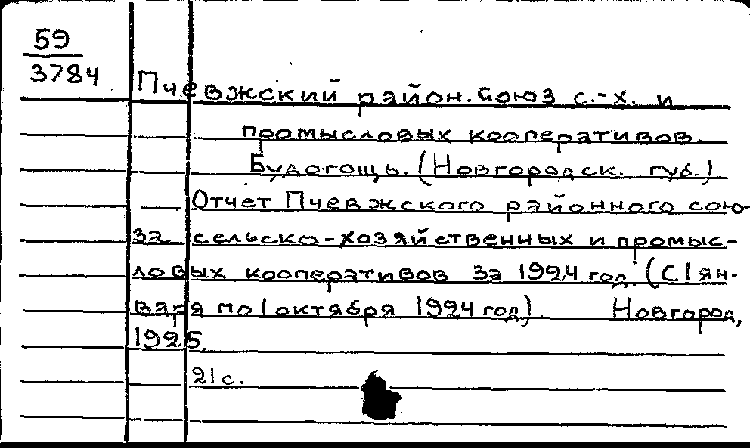 59
3784
Пчевжский район.союз с.-х. и
промысловых кооперативов.
Будогощь. (Новгородск. губ.)
Отчет Пчевжского районного сою-
за сельско-хозяйственных и промыс-
ловых кооперативов за 1924 год. (С 1 ян-
варя по 1 октября 1924 год). Новгород,
1925.
21 с.